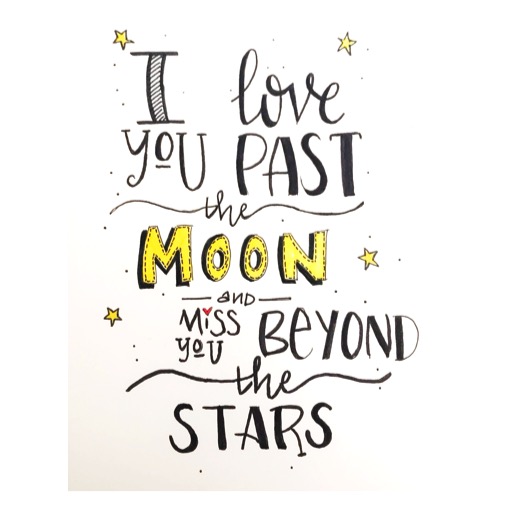 I love
YOU PAST
the
MOON
AND
MiSS
YOU BEYOND
the
STARS